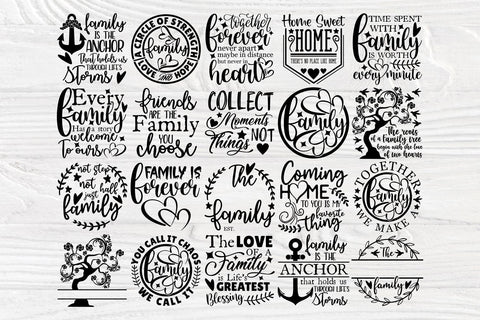 family
IS THE
ANCHOR
That holds us
THROUGH LIFE'S
Storms
A CIRCLE OF STRENGTH
family
LOVE AND HOPE
together
forever
never apart
maybe in distance
but never in
heart
Home Sweet
HOME
THERE'S NO PLACE LIKE HOME
TIME SPENT
WITH
family
IS WORTH
every minute
Every
family
Has a story
welcome
To ours
friends
ARE THE
Family
YOU
choose
COLLECT
Moments
NOT
Things
family
The roots
of a family tree
begin with the love
of two hearts
not step
not half
just
family
FAMILY IS
forever
The
family
EST.
Coming
HOME
TO YOU IS MY
favorite
thing
TOGETHER
family
WE MAKE A
YOU CALL IT CHAOS
family
WE CALL IT
The LOVE
OF A
Family
is Life's
GREATEST
Blessing
family
IS THE
ANCHOR
that holds us
THROUGH LIFE'S
Storms
The
family